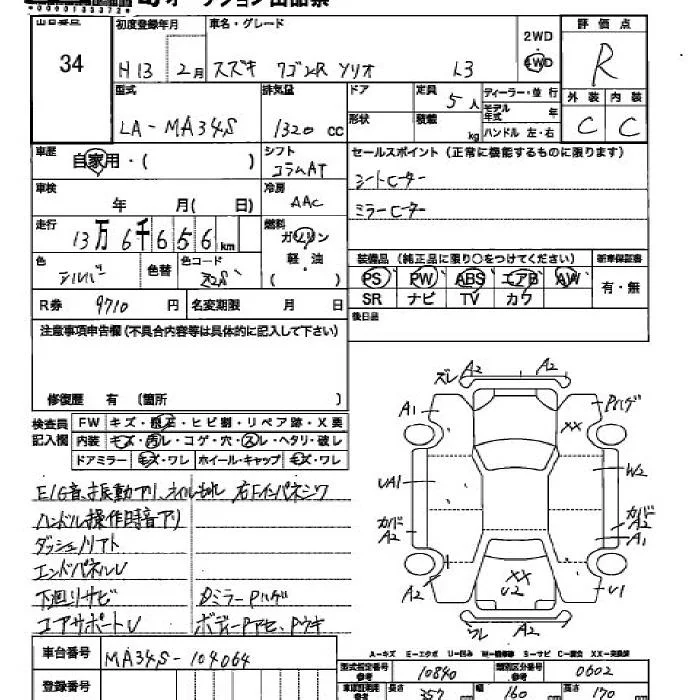 *0000133372*
オークション出品票
34
初度登録年月 車名・グレード 2WD 評価点
H13 2月 スズキ ワゴンR ソリオ 1.3 4WD R
型式 排気量 ドア 定員 5人 ディーラー・並行 外装 内装
LA-MA34S 1320cc 形状 積載 kg モデル年式 年 C C
ハンドル 左・右
車歴 自家用・( ) シフト コラムAT セールスポイント(正常に機能するものに限ります)
車検 年 月( 日) 冷房 AAC シートヒーター
走行 13万6千656km 燃料 ガソリン ミラーヒーター
軽・油
( )
色 シルバー 色替 色コード Z2S 装備品(純正品に限り○をつけてください) 新車保証書
PS PW ABS エアB AW 有・無
R券 9710円 名変期限 月 日 SR ナビ TV カワ
注意事項申告欄(不具合内容等は具体的に記入して下さい) 後日品
修復歴 有 〔箇所 〕
検査員記入欄 FW キズ・補正・ヒビ割・リペア跡・X要
内装 キズ・汚レ・コゲ・穴・スレ・ヘタリ・破レ
ドアミラー キズ・ワレ ホイール・キャップ キズ・ワレ
E/G音、振動アリ、オイルもれ 右Fインパネシワ
ハンドル操作時音アリ
ダッシュノリアト
エンドパネルU
下廻リサビ ミラーPハゲ
コアサポートU ボディーPアセ、Pウキ
ズレ A2 A2
A1 Pハゲ
XX
UA1 W2
カド A2 カド A2
A1
XX
U2
A2 U1
ワレ A2
車台番号 MA34S-104064
登録番号
A-キズ E-エクボ U-凹み W-補修跡 S-サビ C-腐食 XX-交換済
型式指定番号 参考 10840 類別区分番号 参考 0602
車検証記載 参考 長さ 357cm 幅 160cm 高さ 170cm